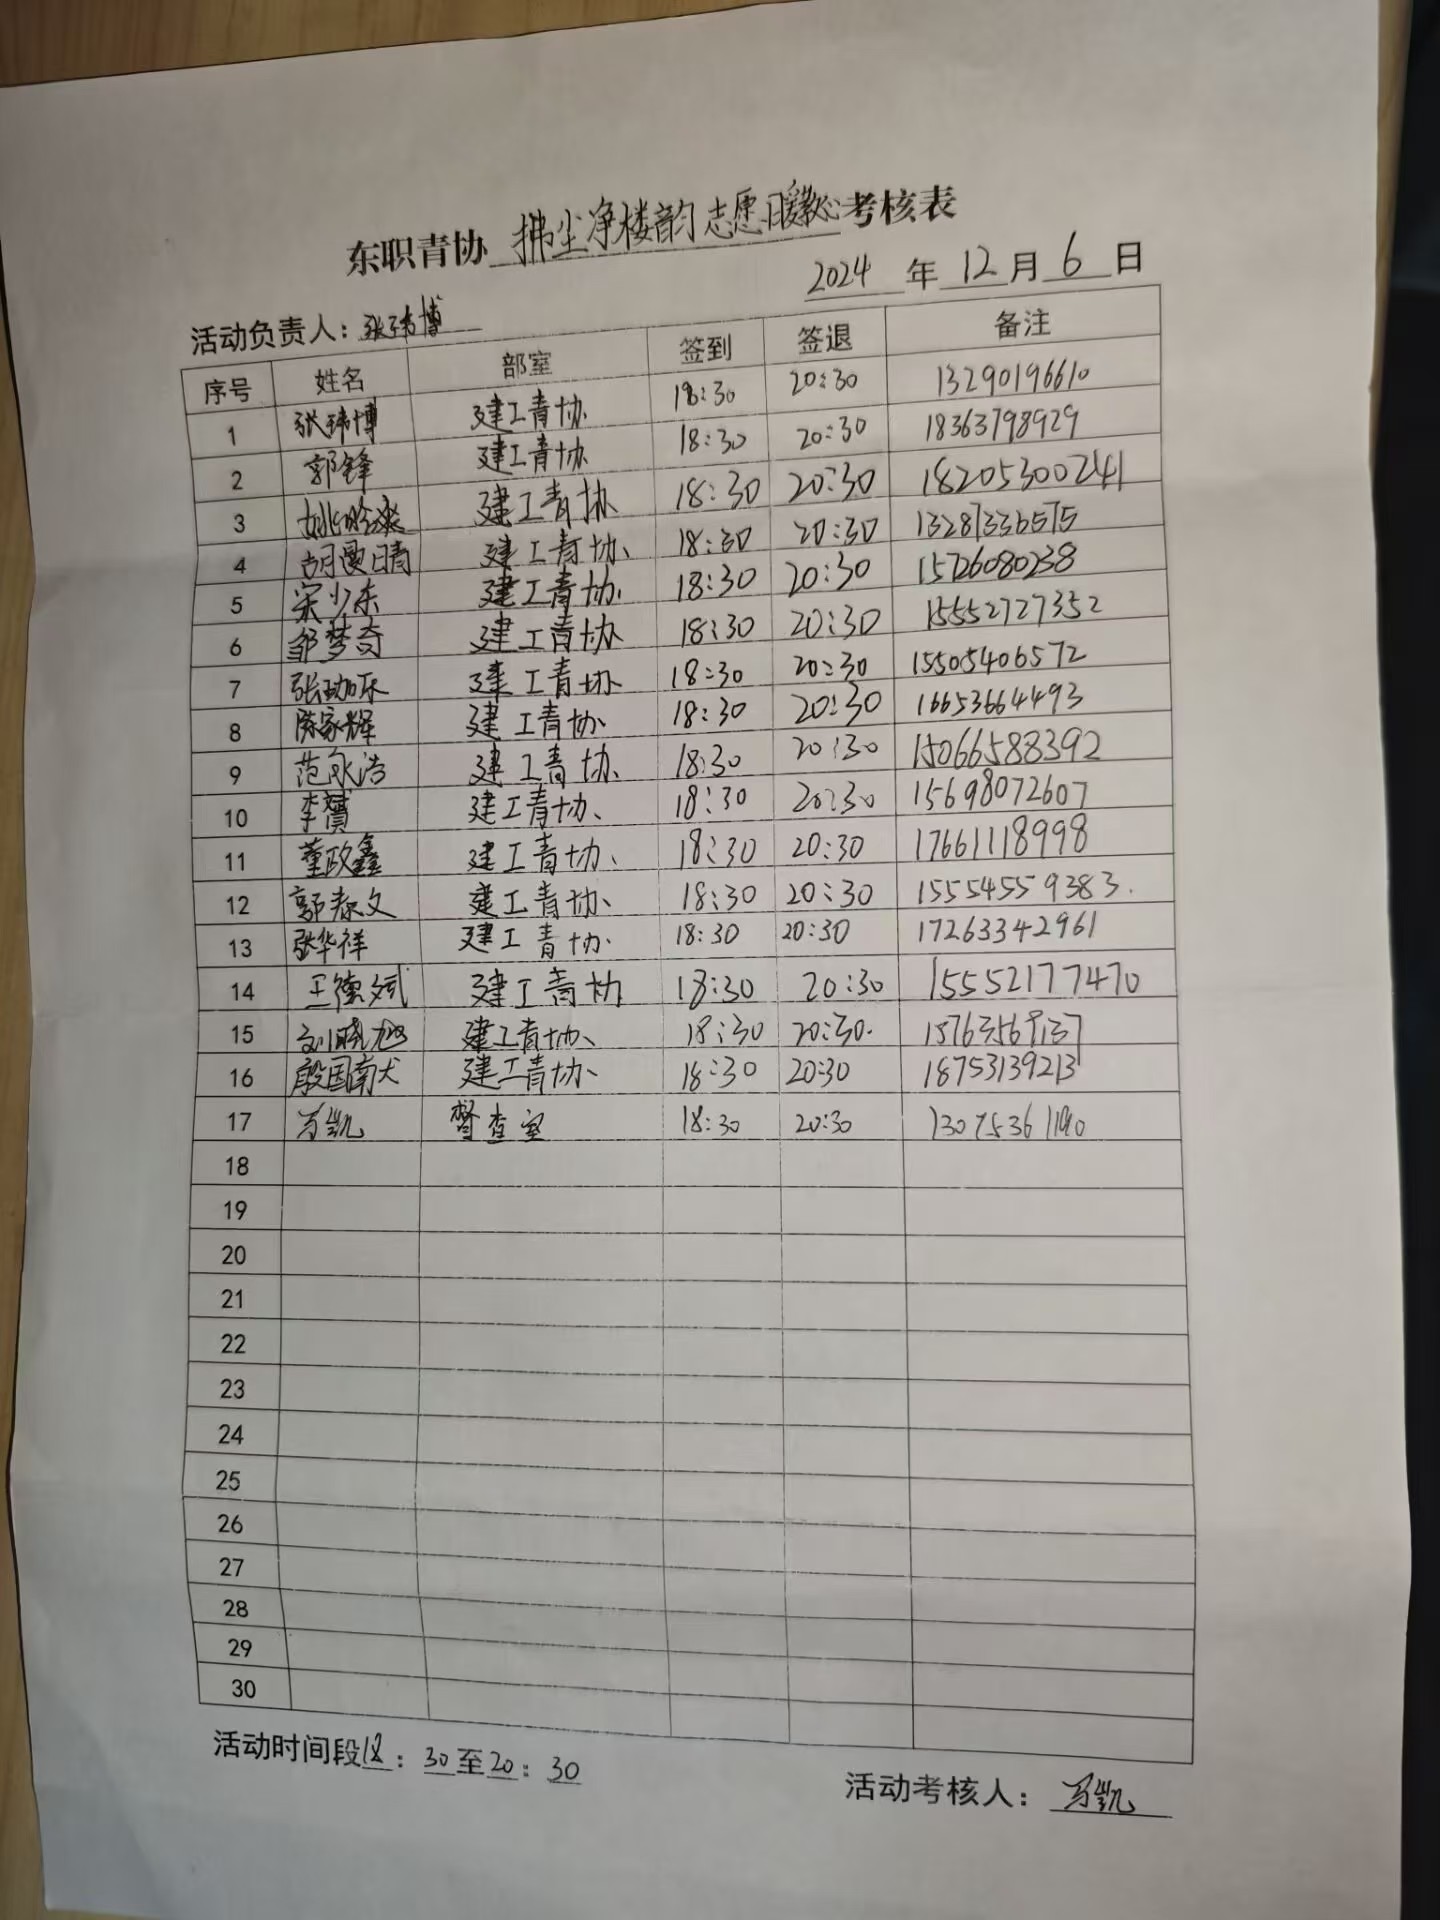 东职青协 拂尘净楼韵 志愿暖心 考核表
2024 年 12 月 6 日
活动负责人：张玮博
序号 姓名 部室 签到 签退 备注
1 张玮博 建工青协 18:30 20:30 13290196610
2 郭锋 建工青协 18:30 20:30 18363798929
3 建工青协 18:30 20:30 18205300241
4 胡曼晴 建工青协 18:30 20:30 13287336575
5 宋少东 建工青协 18:30 20:30 15726080238
6 邹梦奇 建工青协 18:30 20:30 15552727352
7 建工青协 18:30 20:30 15505406572
8 陈家辉 建工青协 18:30 20:30 16653664493
9 范永浩 建工青协 18:30 20:30 15066588392
10 李赟 建工青协 18:30 20:30 15698072607
11 董政鑫 建工青协 18:30 20:30 17661118998
12 郭泰文 建工青协 18:30 20:30 15554559383
13 张华祥 建工青协 18:30 20:30 17263342961
14 王德斌 建工青协 18:30 20:30 15552177470
15 刘晓旭 建工青协 18:30 20:30
16 殷国南犬 建工青协 18:30 20:30 18753139213
17 万凯 督查室 18:30 20:30 13075361190
18
19
20
21
22
23
24
25
26
27
28
29
30
活动时间段18：30至20：30
活动考核人：万凯